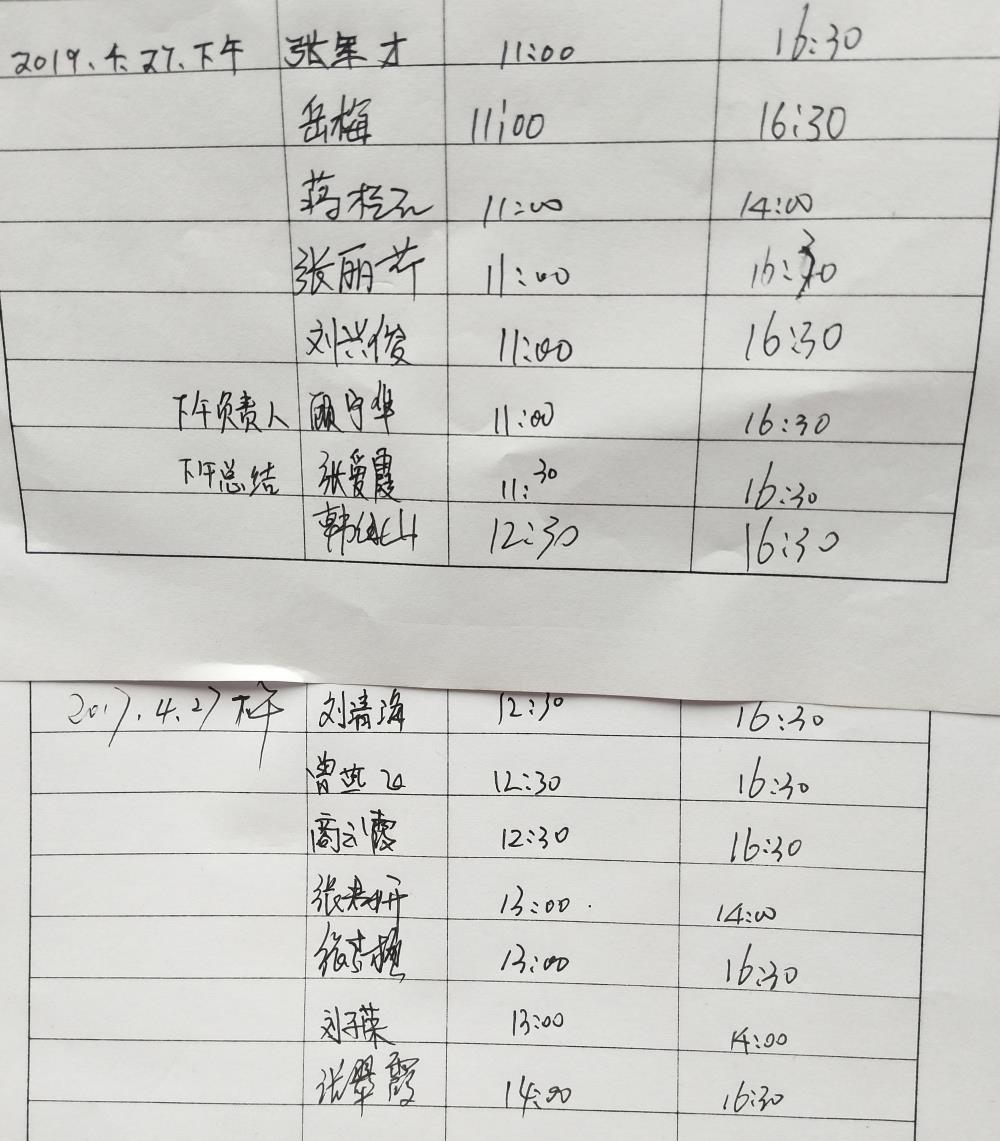 2019.4.27.下午 张军才 11:00 16:30
岳梅 11:00 16:30
蒋 11:00 14:00
张丽芹 11:00 16:30
刘兴俊 11:00 16:30
下午负责人 顾守华 11:00 16:30
下午总结 张爱霞 11:30 16:30
韩 12:30 16:30
2017.4.27下午 刘清海 12:30 16:30
曾燕 12:30 16:30
商云霞 12:30 16:30
张 13:00 14:00
13:00 16:30
刘子荣 13:00 14:00
张翠霞 14:00 16:30